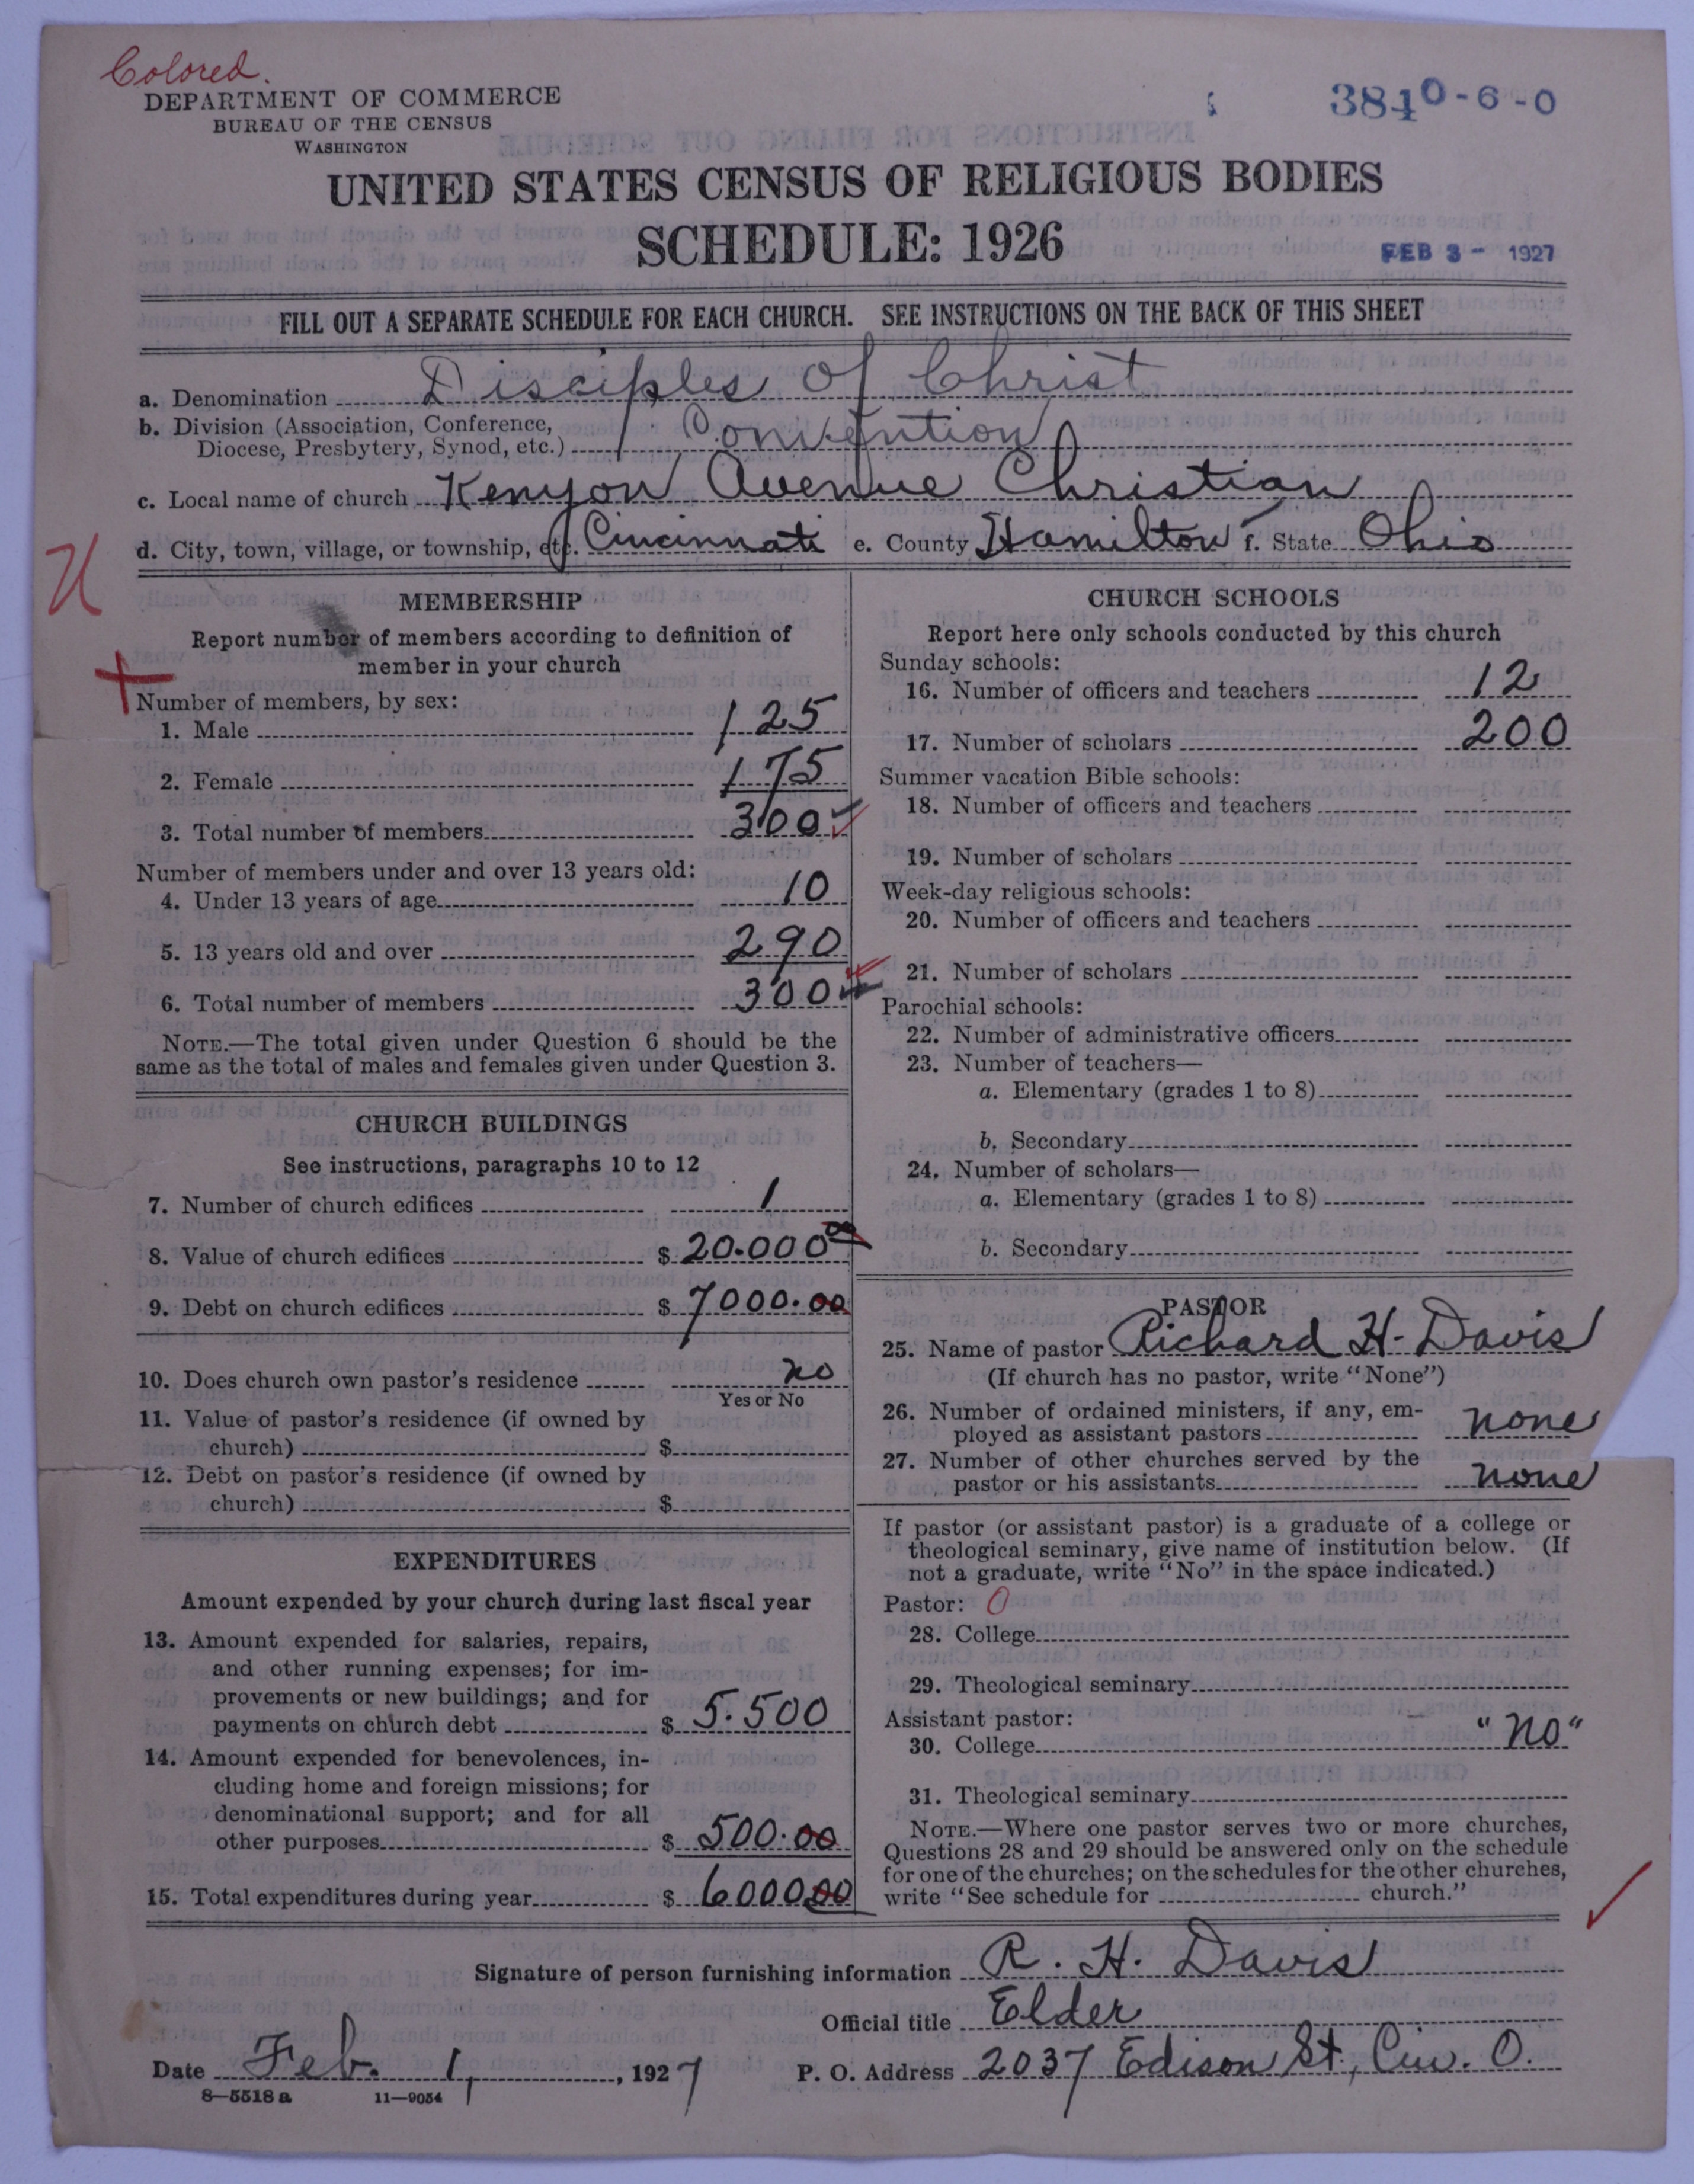 Colored.
DEPARTMENT OF COMMERCE
BUREAU OF THE CENSUS
WASHINGTON
3840-6-0
UNITED STATES CENSUS OF RELIGIOUS BODIES
SCHEDULE: 1926
FEB 3 - 1927
FILL OUT A SEPARATE SCHEDULE FOR EACH CHURCH. SEE INSTRUCTIONS ON THE BACK OF THIS SHEET
a. Denomination Disciples of Christ
b. Division (Association, Conference,
Diocese, Presbytery, Synod, etc.) Convention
c. Local name of church Kenyon Avenue Christian
d. City, town, village, or township, etc. Cincinnati e. County Hamilton f. State Ohio
U
MEMBERSHIP
Report number of members according to definition of
member in your church
Number of members, by sex:
1. Male 125
2. Female 175
3. Total number of members 300
Number of members under and over 13 years old:
4. Under 13 years of age 10
5. 13 years old and over 290
6. Total number of members 300
NOTE.—The total given under Question 6 should be the
same as the total of males and females given under Question 3.
CHURCH BUILDINGS
See instructions, paragraphs 10 to 12
7. Number of church edifices 1
8. Value of church edifices $ 20.000 00
9. Debt on church edifices $ 7000.00
10. Does church own pastor's residence no
Yes or No
11. Value of pastor's residence (if owned by
church) $
12. Debt on pastor's residence (if owned by
church) $
EXPENDITURES
Amount expended by your church during last fiscal year
13. Amount expended for salaries, repairs,
and other running expenses; for im-
provements or new buildings; and for
payments on church debt $ 5.500
14. Amount expended for benevolences, in-
cluding home and foreign missions; for
denominational support; and for all
other purposes $ 500.00
15. Total expenditures during year $ 6000.00
CHURCH SCHOOLS
Report here only schools conducted by this church
Sunday schools:
16. Number of officers and teachers 12
17. Number of scholars 200
Summer vacation Bible schools:
18. Number of officers and teachers
19. Number of scholars
Week-day religious schools:
20. Number of officers and teachers
21. Number of scholars
Parochial schools:
22. Number of administrative officers
23. Number of teachers—
a. Elementary (grades 1 to 8)
b. Secondary
24. Number of scholars—
a. Elementary (grades 1 to 8)
b. Secondary
PASTOR
25. Name of pastor Richard H. Davis
(If church has no pastor, write "None")
26. Number of ordained ministers, if any, em-
ployed as assistant pastors none
27. Number of other churches served by the
pastor or his assistants none
If pastor (or assistant pastor) is a graduate of a college or
theological seminary, give name of institution below. (If
not a graduate, write "No" in the space indicated.)
Pastor: 0
28. College
29. Theological seminary
Assistant pastor:
30. College "No"
31. Theological seminary
NOTE.—Where one pastor serves two or more churches,
Questions 28 and 29 should be answered only on the schedule
for one of the churches; on the schedules for the other churches,
write "See schedule for church."
Signature of person furnishing information R. H. Davis
Official title Elder
Date Feb. 1, 1927 P. O. Address 2037 Edison St., Cin. O.
8—5518 a 11—9054